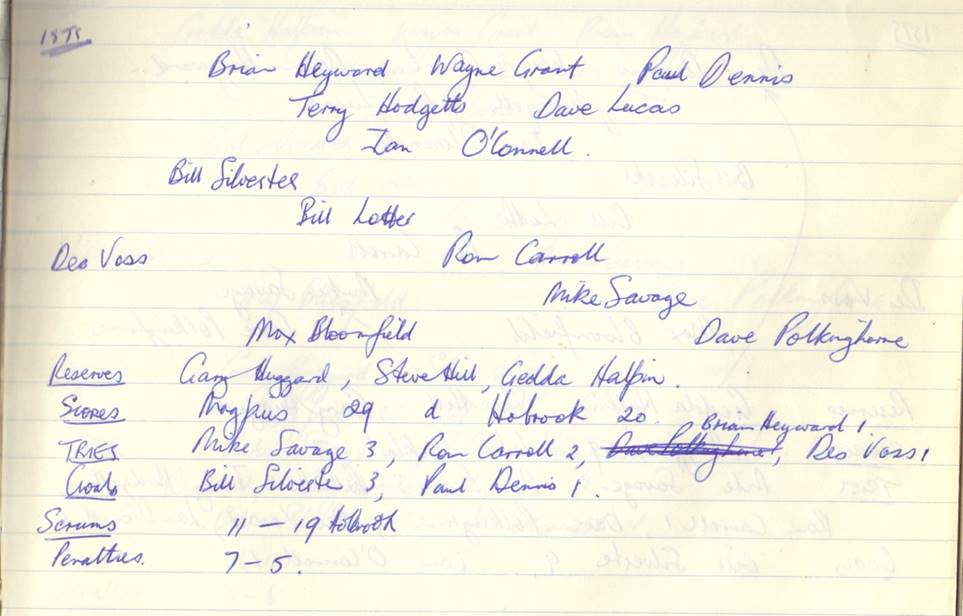 1STS
Brian Heyward Wayne Grant Paul Dennis
Terry Hodgetts Dave Lucas
Ian O'Connell.
Bill Silvester
Bill Lotter
Des Voss Ron Carroll
Mike Savage
Max Bloomfield Dave Polkinghorne
Reserves Gary Huggard, Steve Hill, Gedda Halpin.
Scores Magpies 29 d Holbrook 20.
Brian Heyward 1.
TRIES Mike Savage 3, Ron Carroll 2, Dave Polkinghorne 1, Des Voss 1
Goals Bill Silvester 3, Paul Dennis 1.
Scrums 11 - 19 Holbrook
Penalties. 7-5.